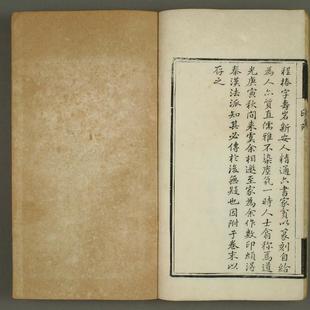 程椿字壽岩新安人精通六書家貧以篆刻自給
為人亢質直儒雅不染塵氣一時人士翕稱為道
光庚寅秋間來鸞余相遊至家為余作數印頗得
秦漢法派知其必傳於後無疑也因附于卷末以
存之